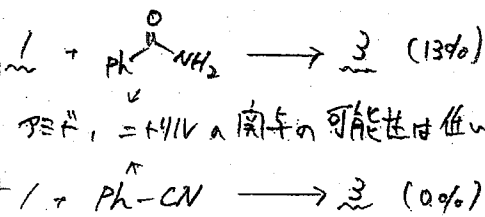 1 + Ph O NH2 → 3 (13%)
アミド, ニトリルの関与の可能性は低い
1 + Ph-CN → 3 (0%)